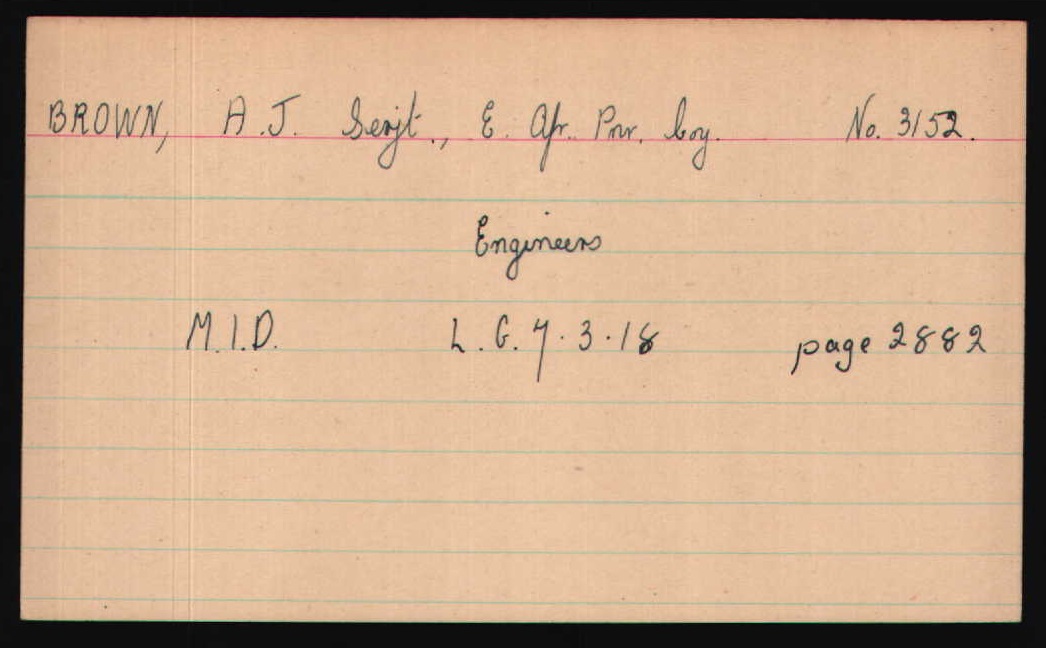 BROWN, A.J. Serjt., E. Afr. Pnr. Coy. No. 3152.
Engineers
M.I.D. L.G. 7.3.18 page 2882